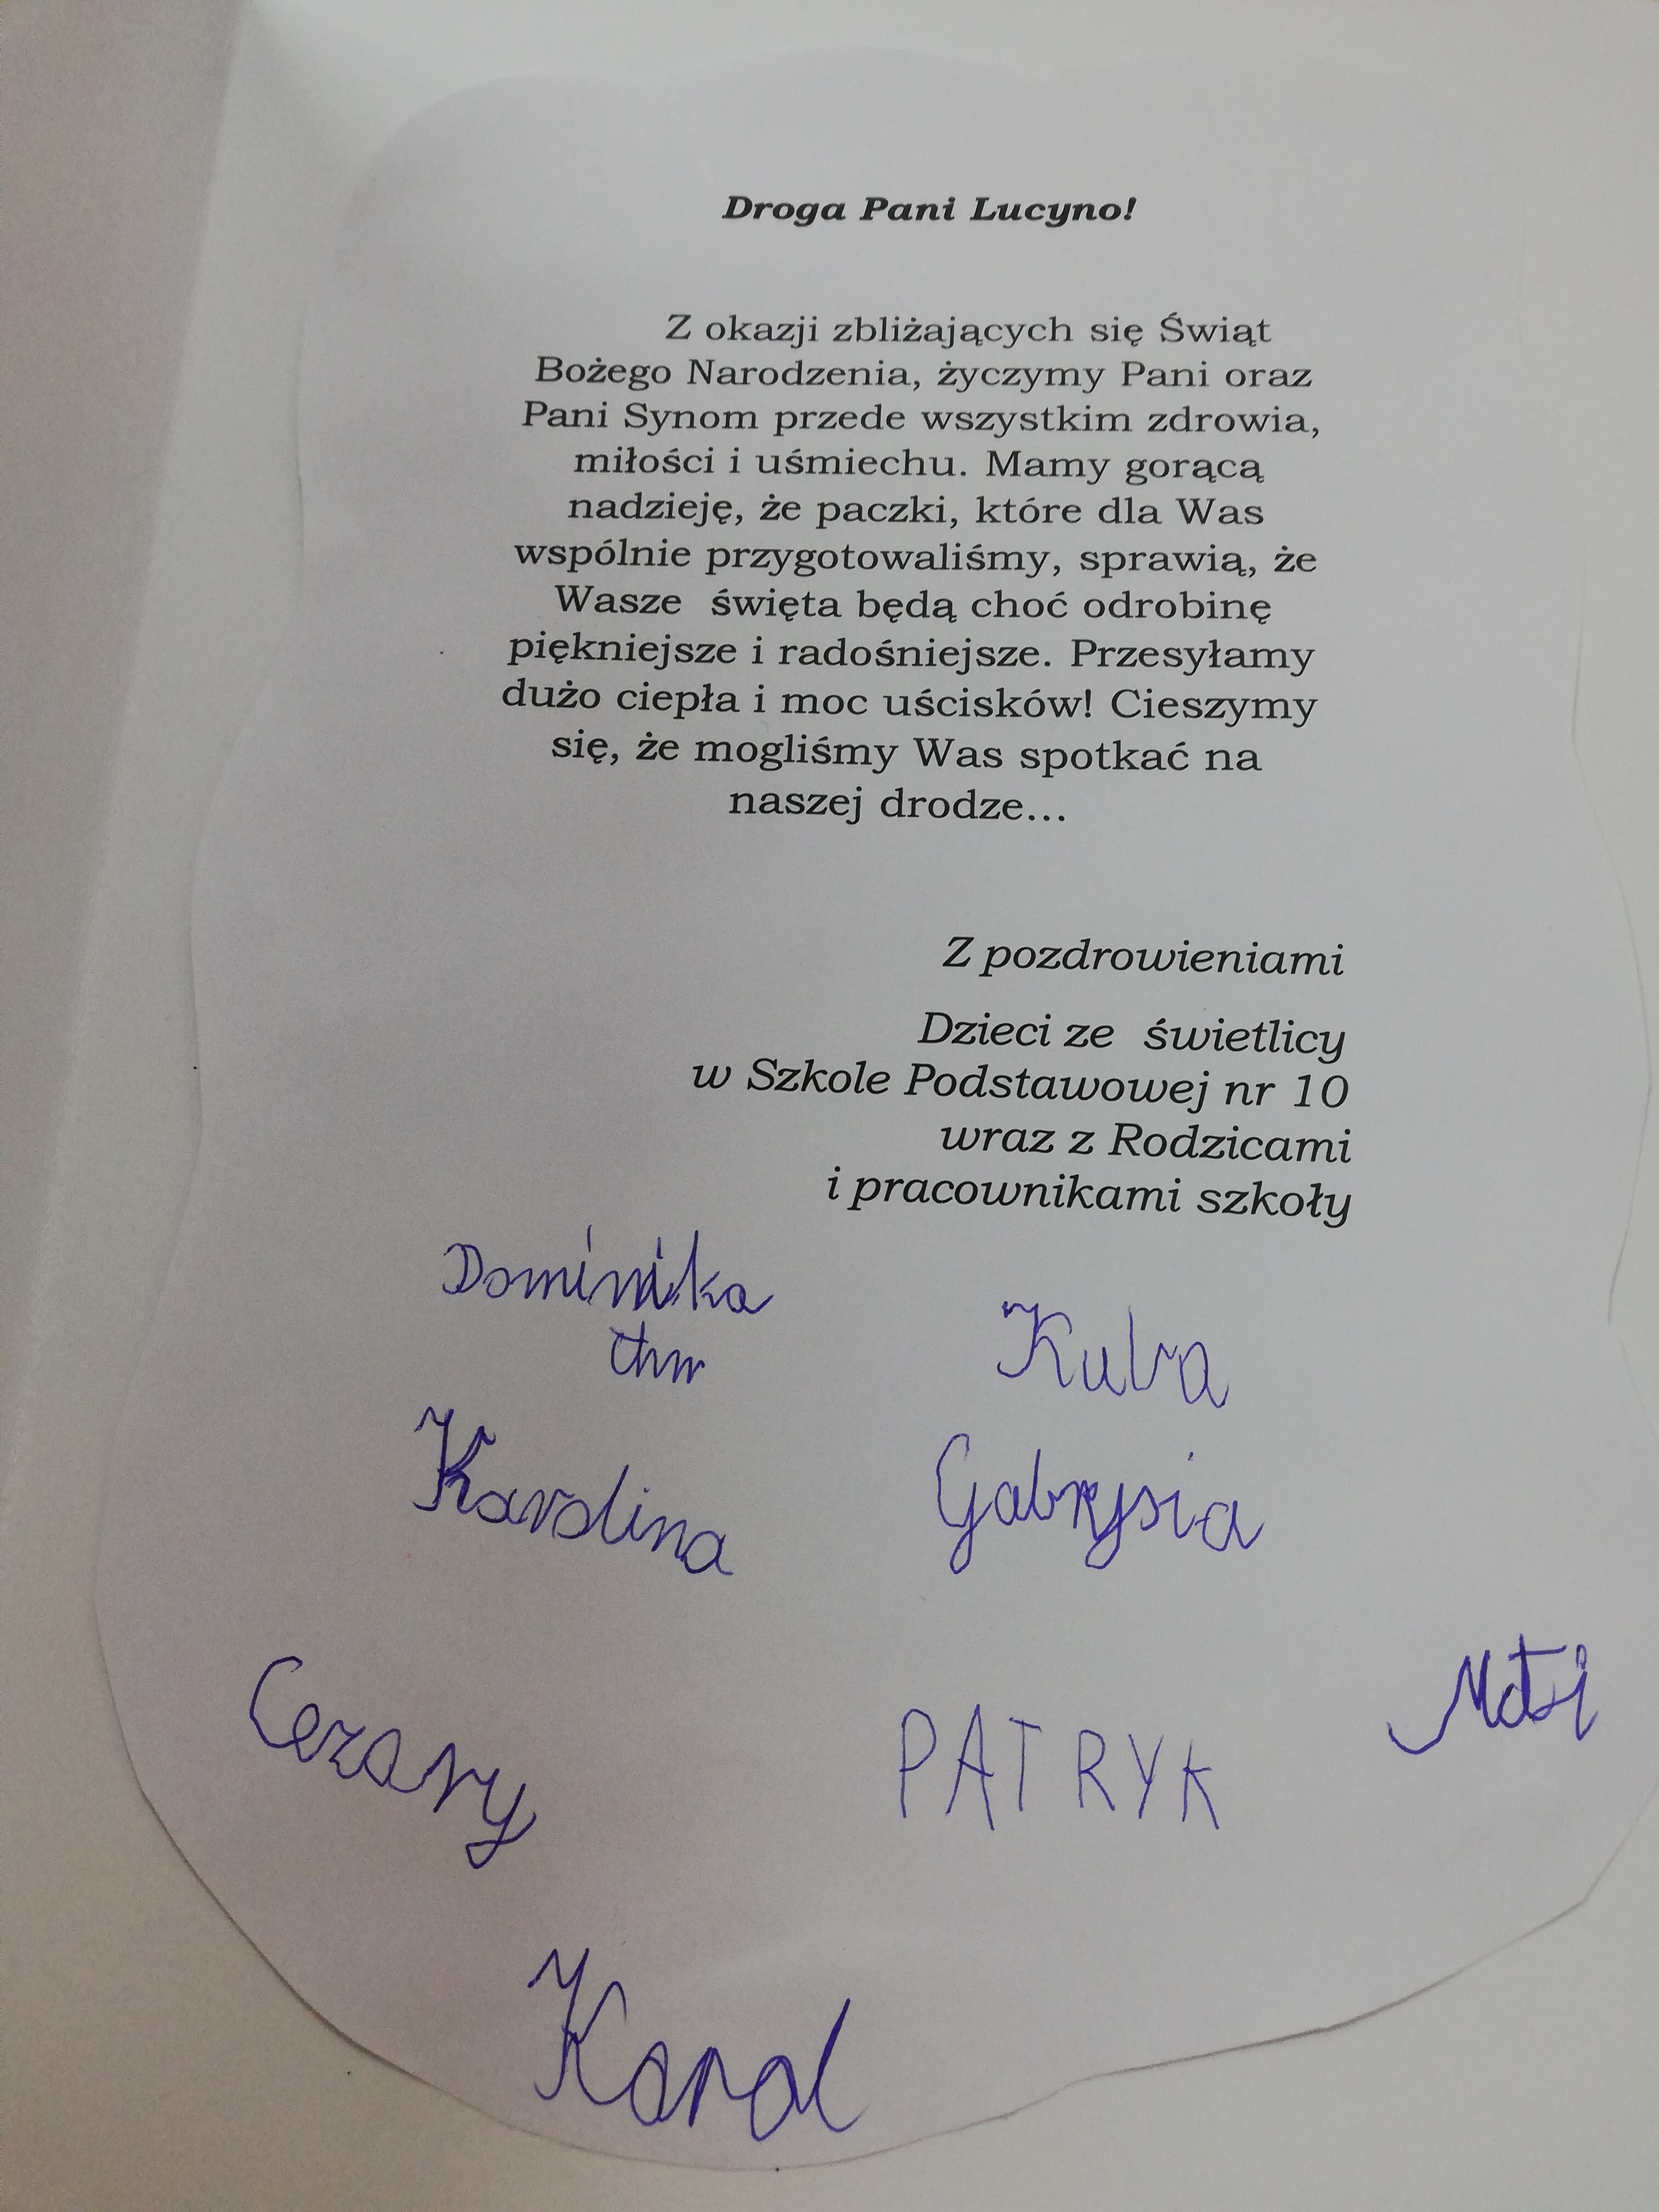 Droga Pani Lucyno!
Z okazji zbliżających się Świąt
Bożego Narodzenia, życzymy Pani oraz
Pani Synom przede wszystkim zdrowia,
miłości i uśmiechu. Mamy gorącą
nadzieję, że paczki, które dla Was
wspólnie przygotowaliśmy, sprawią, że
Wasze święta będą choć odrobinę
piękniejsze i radośniejsze. Przesyłamy
dużo ciepła i moc uścisków! Cieszymy
się, że mogliśmy Was spotkać na
naszej drodze...
Z pozdrowieniami
Dzieci ze świetlicy
w Szkole Podstawowej nr 10
wraz z Rodzicami
i pracownikami szkoły
Dominika
Kuba
Karolina
Gabrysia
Cezary
PATRYK
Karol